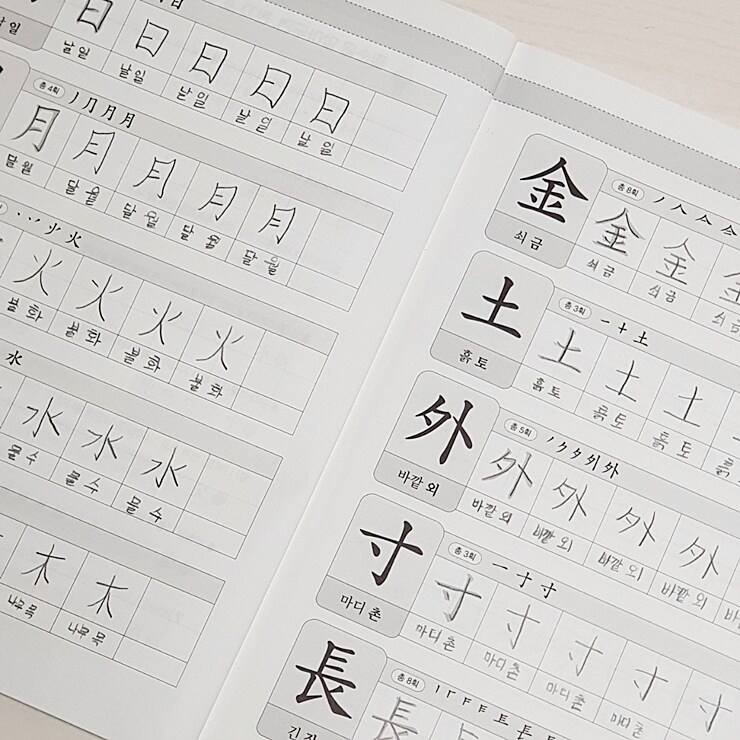 日 日 日 日 日
날 일 날 일 날 일 날 일 날 일
총 4획
月 月 月 月 月
달 월 달 월 달 월 달 월 달 월
火
火 火 火 火
불 화 불 화 불 화 불 화
水
水 水 水
물 수 물 수 물 수
木 木
나무 목 나무 목
金
쇠 금
총 8획
金 金 金
쇠 금 쇠 금 쇠 금
土
흙 토
총 3획
一 十 土
土 土 土
흙 토 흙 토 흙 토
外
바깥 외
총 5획
外
外 外 外 外
바깥 외 바깥 외 바깥 외 바깥 외
寸
마디 촌
총 3획
一 寸 寸
寸 寸 寸 寸 寸
마디 촌 마디 촌 마디 촌 마디 촌
長
총 8획
長
長